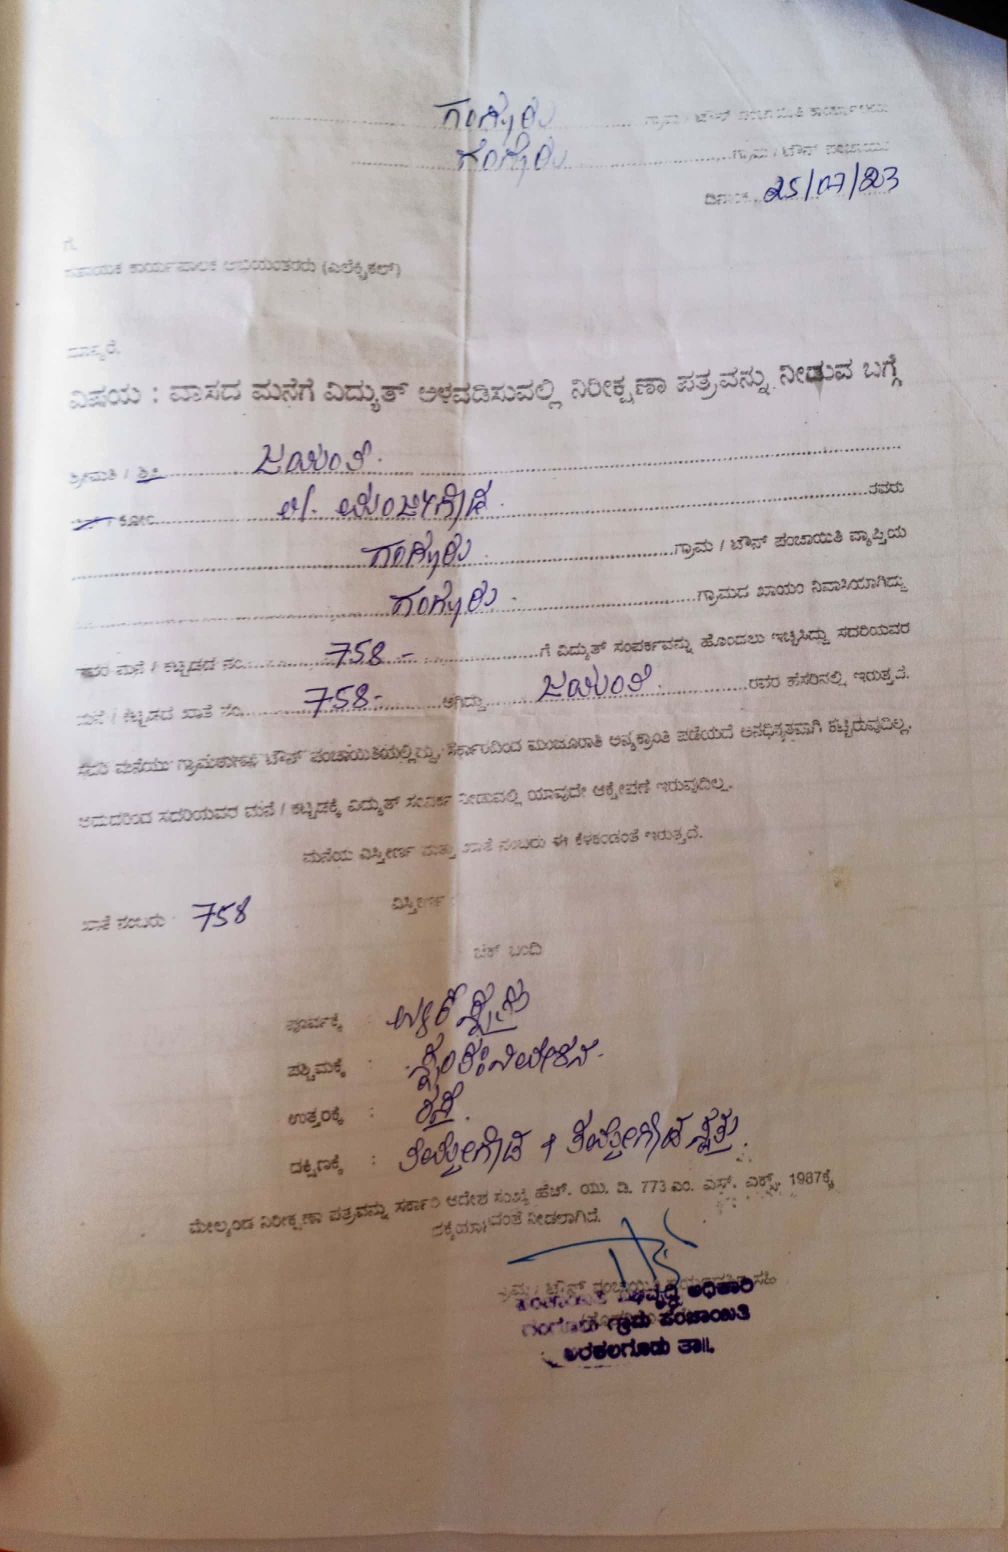 ಗಂಗೂರು ಗ್ರಾಮ / ಟೌನ್ ಪಂಚಾಯಿತಿ ಕಾರ್ಯಾಲಯ
ಗಂಗೂರು ಗ್ರಾಮ / ಟೌನ್ ಪಂಚಾಯಿತಿ
ದಿನಾಂಕ 25/07/23
ಗೆ,
ಸಹಾಯಕ ಕಾರ್ಯಪಾಲಕ ಅಭಿಯಂತರರು (ಎಲೆಕ್ಟ್ರಿಕಲ್)
ಮಾನ್ಯರೆ,
ವಿಷಯ : ವಾಸದ ಮನೆಗೆ ವಿದ್ಯುತ್ ಅಳವಡಿಸುವಲ್ಲಿ ನಿರೀಕ್ಷಣಾ ಪತ್ರವನ್ನು ನೀಡುವ ಬಗ್ಗೆ
ಶ್ರೀಮತಿ / ಶ್ರೀ ಜಯಂತಿ
ಕೋಂ ಲೇ. ಮಂಜೇಗೌಡ ರವರು
ಗಂಗೂರು ಗ್ರಾಮ / ಟೌನ್ ಪಂಚಾಯಿತಿ ವ್ಯಾಪ್ತಿಯ
ಗಂಗೂರು ಗ್ರಾಮದ ಖಾಯಂ ನಿವಾಸಿಯಾಗಿದ್ದು
ಇವರ ಮನೆ / ಕಟ್ಟಡದ ನಂ. 758 - ಗೆ ವಿದ್ಯುತ್ ಸಂಪರ್ಕವನ್ನು ಹೊಂದಲು ಇಚ್ಛಿಸಿದ್ದು ಸದರಿಯವರ
ಮನೆ / ಕಟ್ಟಡದ ಖಾತೆ ನಂ. 758 - ಆಗಿದ್ದು ಜಯಂತಿ ರವರ ಹೆಸರಿನಲ್ಲಿ ಇರುತ್ತದೆ.
ಸದರಿ ಮನೆಯು ಗ್ರಾಮಠಾಣಾ ಟೌನ್ ಪಂಚಾಯಿತಿಯಲ್ಲಿದ್ದು, ಸರ್ಕಾರದಿಂದ ಮಂಜೂರಾತಿ ಅನ್ಯಕ್ರಾಂತಿ ಪಡೆಯದೆ ಅನಧಿಕೃತವಾಗಿ ಕಟ್ಟಿರುವುದಿಲ್ಲ.
ಆದುದರಿಂದ ಸದರಿಯವರ ಮನೆ / ಕಟ್ಟಡಕ್ಕೆ ವಿದ್ಯುತ್ ಸಂಪರ್ಕ ನೀಡುವಲ್ಲಿ ಯಾವುದೇ ಆಕ್ಷೇಪಣೆ ಇರುವುದಿಲ್ಲ.
ಮನೆಯ ವಿಸ್ತೀರ್ಣ ಮತ್ತು ಖಾತೆ ನಂಬರು ಈ ಕೆಳಕಂಡಂತೆ ಇರುತ್ತದೆ.
ಖಾತೆ ನಂಬರು : 758 ವಿಸ್ತೀರ್ಣ :
ಚೆಕ್ ಬಂದಿ
ಪೂರ್ವಕ್ಕೆ :
ಪಶ್ಚಿಮಕ್ಕೆ :
ಉತ್ತರಕ್ಕೆ : ರಸ್ತೆ.
ದಕ್ಷಿಣಕ್ಕೆ :
ಮೇಲ್ಕಂಡ ನಿರೀಕ್ಷಣಾ ಪತ್ರವನ್ನು ಸರ್ಕಾರಿ ಆದೇಶ ಸಂಖ್ಯೆ ಹೆಚ್. ಯು. ಡಿ. 773 ಎಂ. ಎಸ್. ಎಕ್ಸ್. 1987ಕ್ಕೆ
ನೀಡಲಾಗಿದೆ.
ಪಂಚಾಯಿತಿ ಅಭಿವೃದ್ಧಿ ಅಧಿಕಾರಿ
ಗಂಗೂರು ಗ್ರಾಮ ಪಂಚಾಯಿತಿ
ಅರಕಲಗೂಡು ತಾ||.